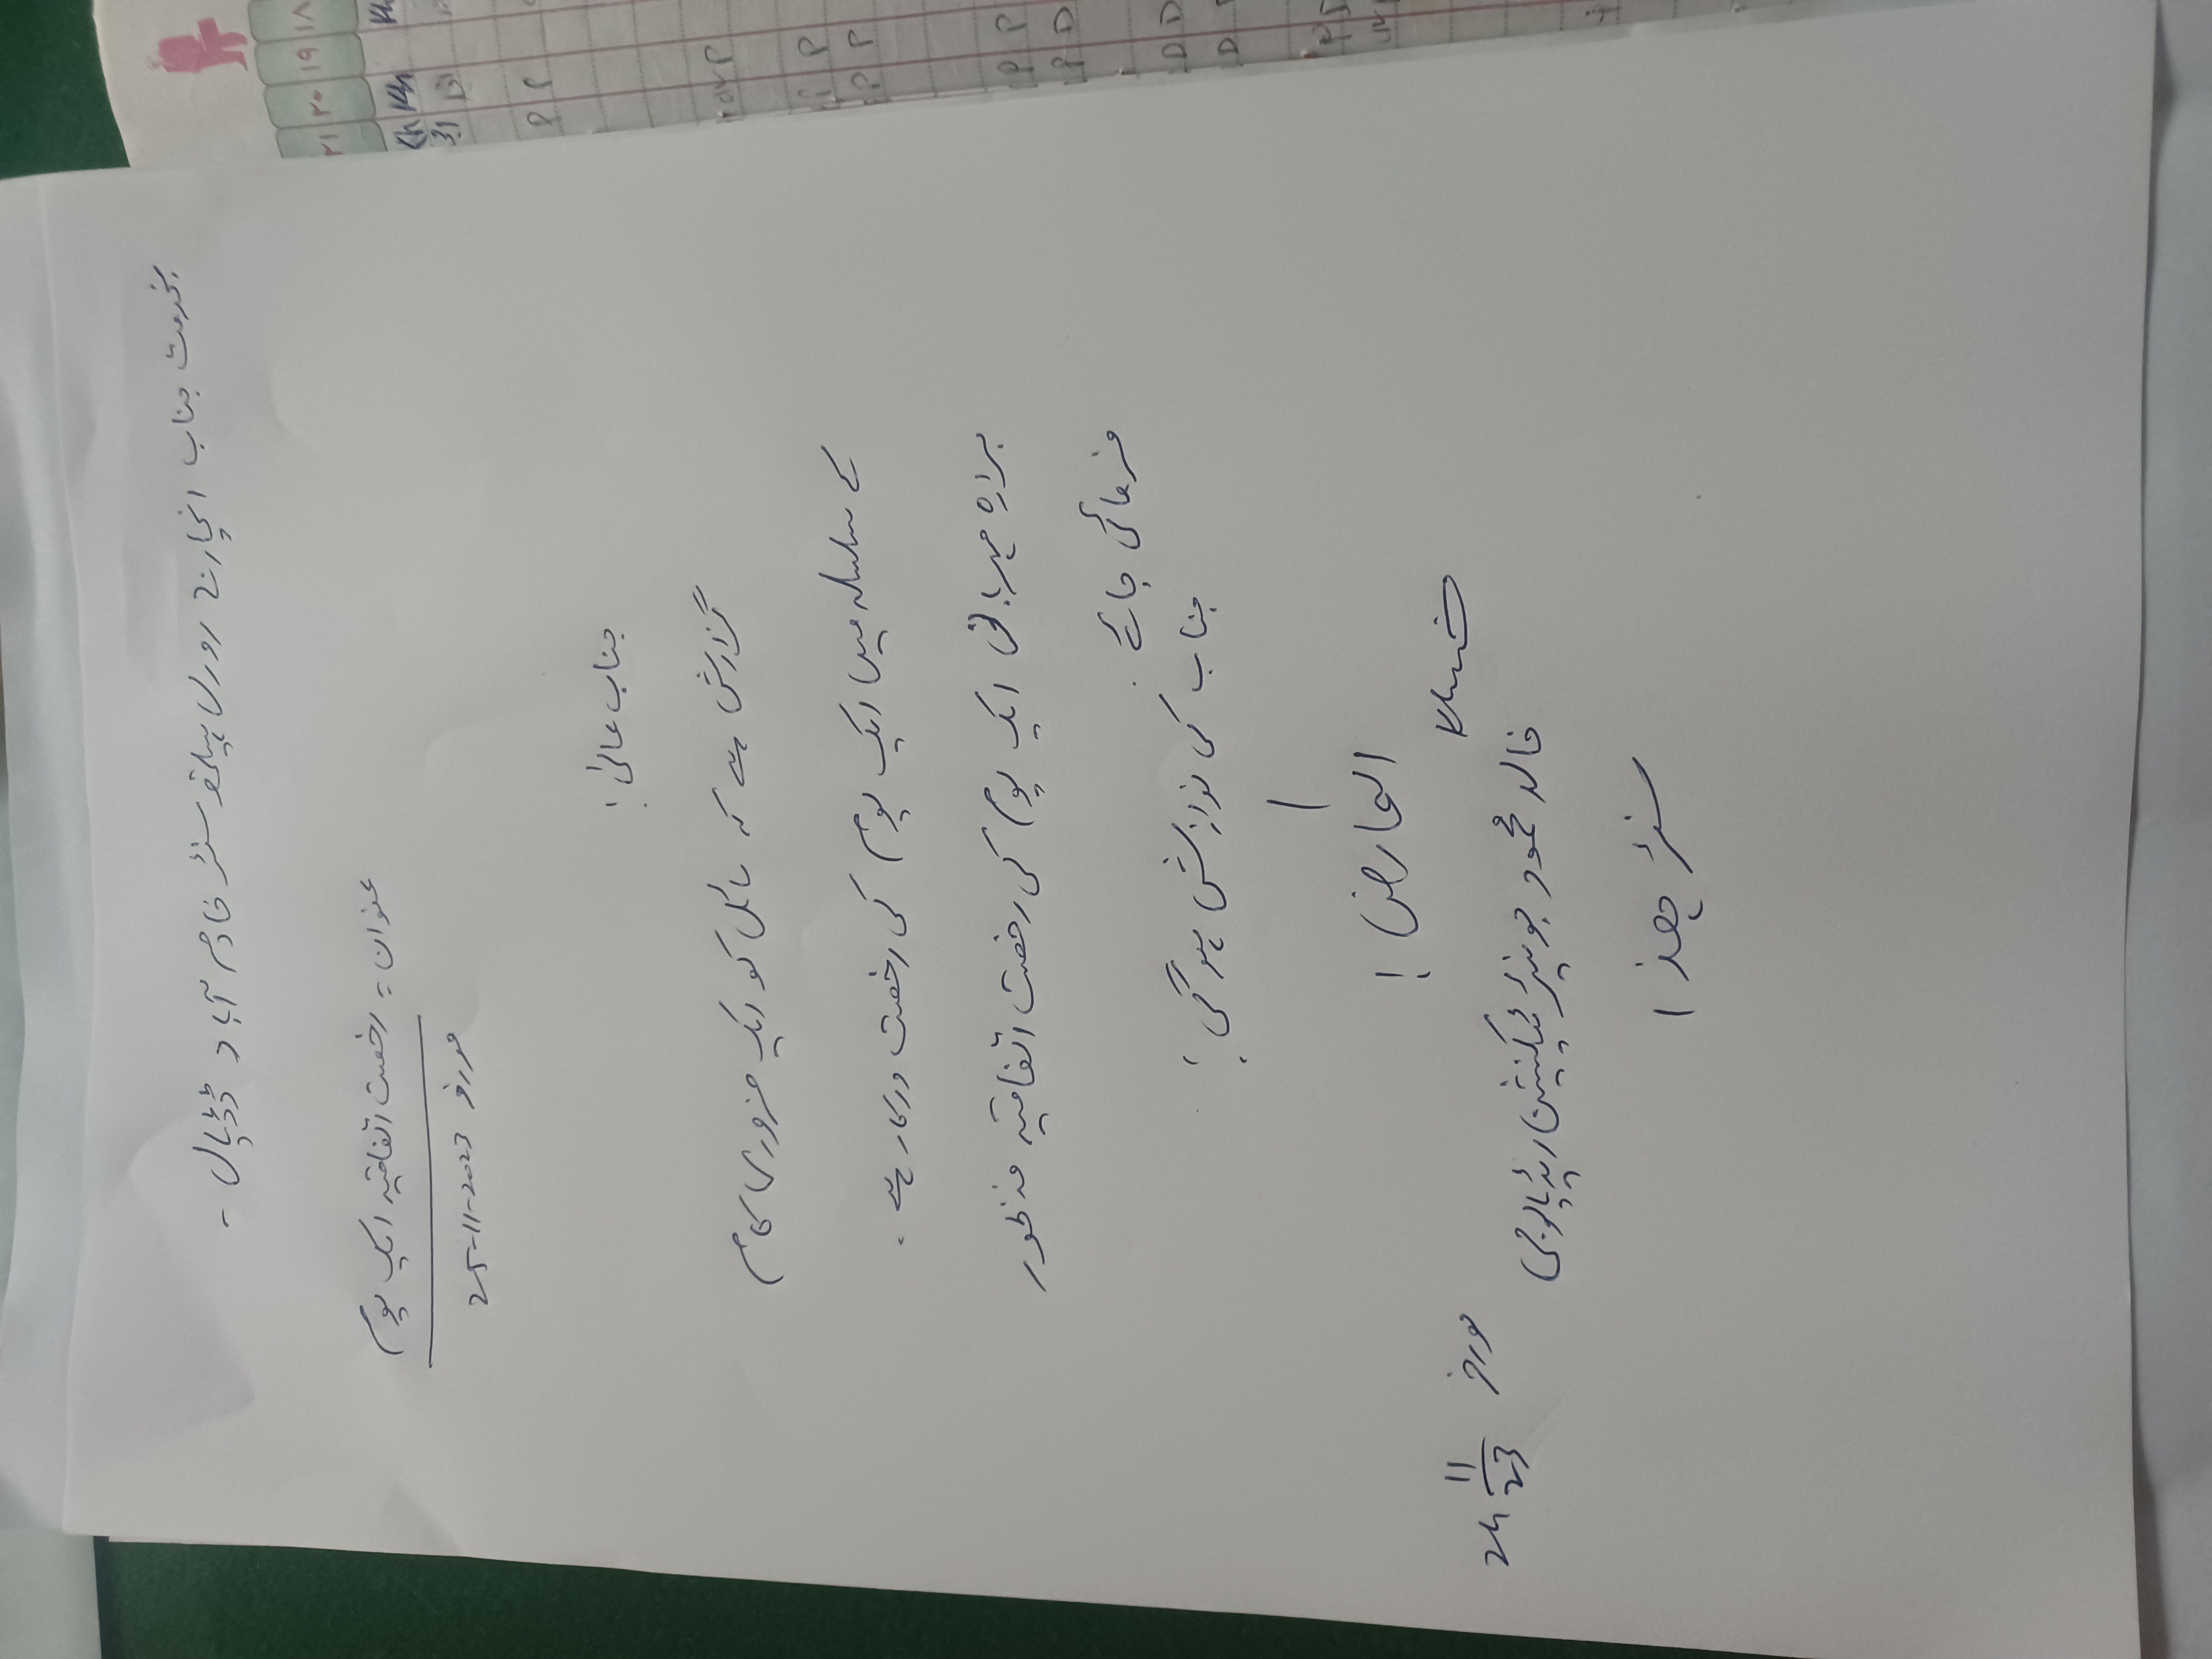 بخدمت جناب انچارج رورل ہیلتھ سنٹر خادم آباد ڈڈیال -
عنوان :- رخصت اتفاقیہ ایک یوم
مورخہ 25-11-2023
جناب عالیٰ !
گزارش ہے کہ سائل کو ایک ضروری کام
کے سلسلہ میں ایک یوم کی رخصت درکار ہے ۔
براہ مہربانی ایک یوم کی رخصت اتفاقیہ منظور
فرمائی جائے ۔
جناب کی نوازش ہوگی !
العارض !
خالد محمود جونیئر ٹیکنیشن ریڈیالوجی
مورخہ 24 11/23
سنٹر ھذا ۱
۲۱ ۲۰ ۱۹ ۱۸
Kh Kh
P P
P
P
P P
P P
P D
D D
D